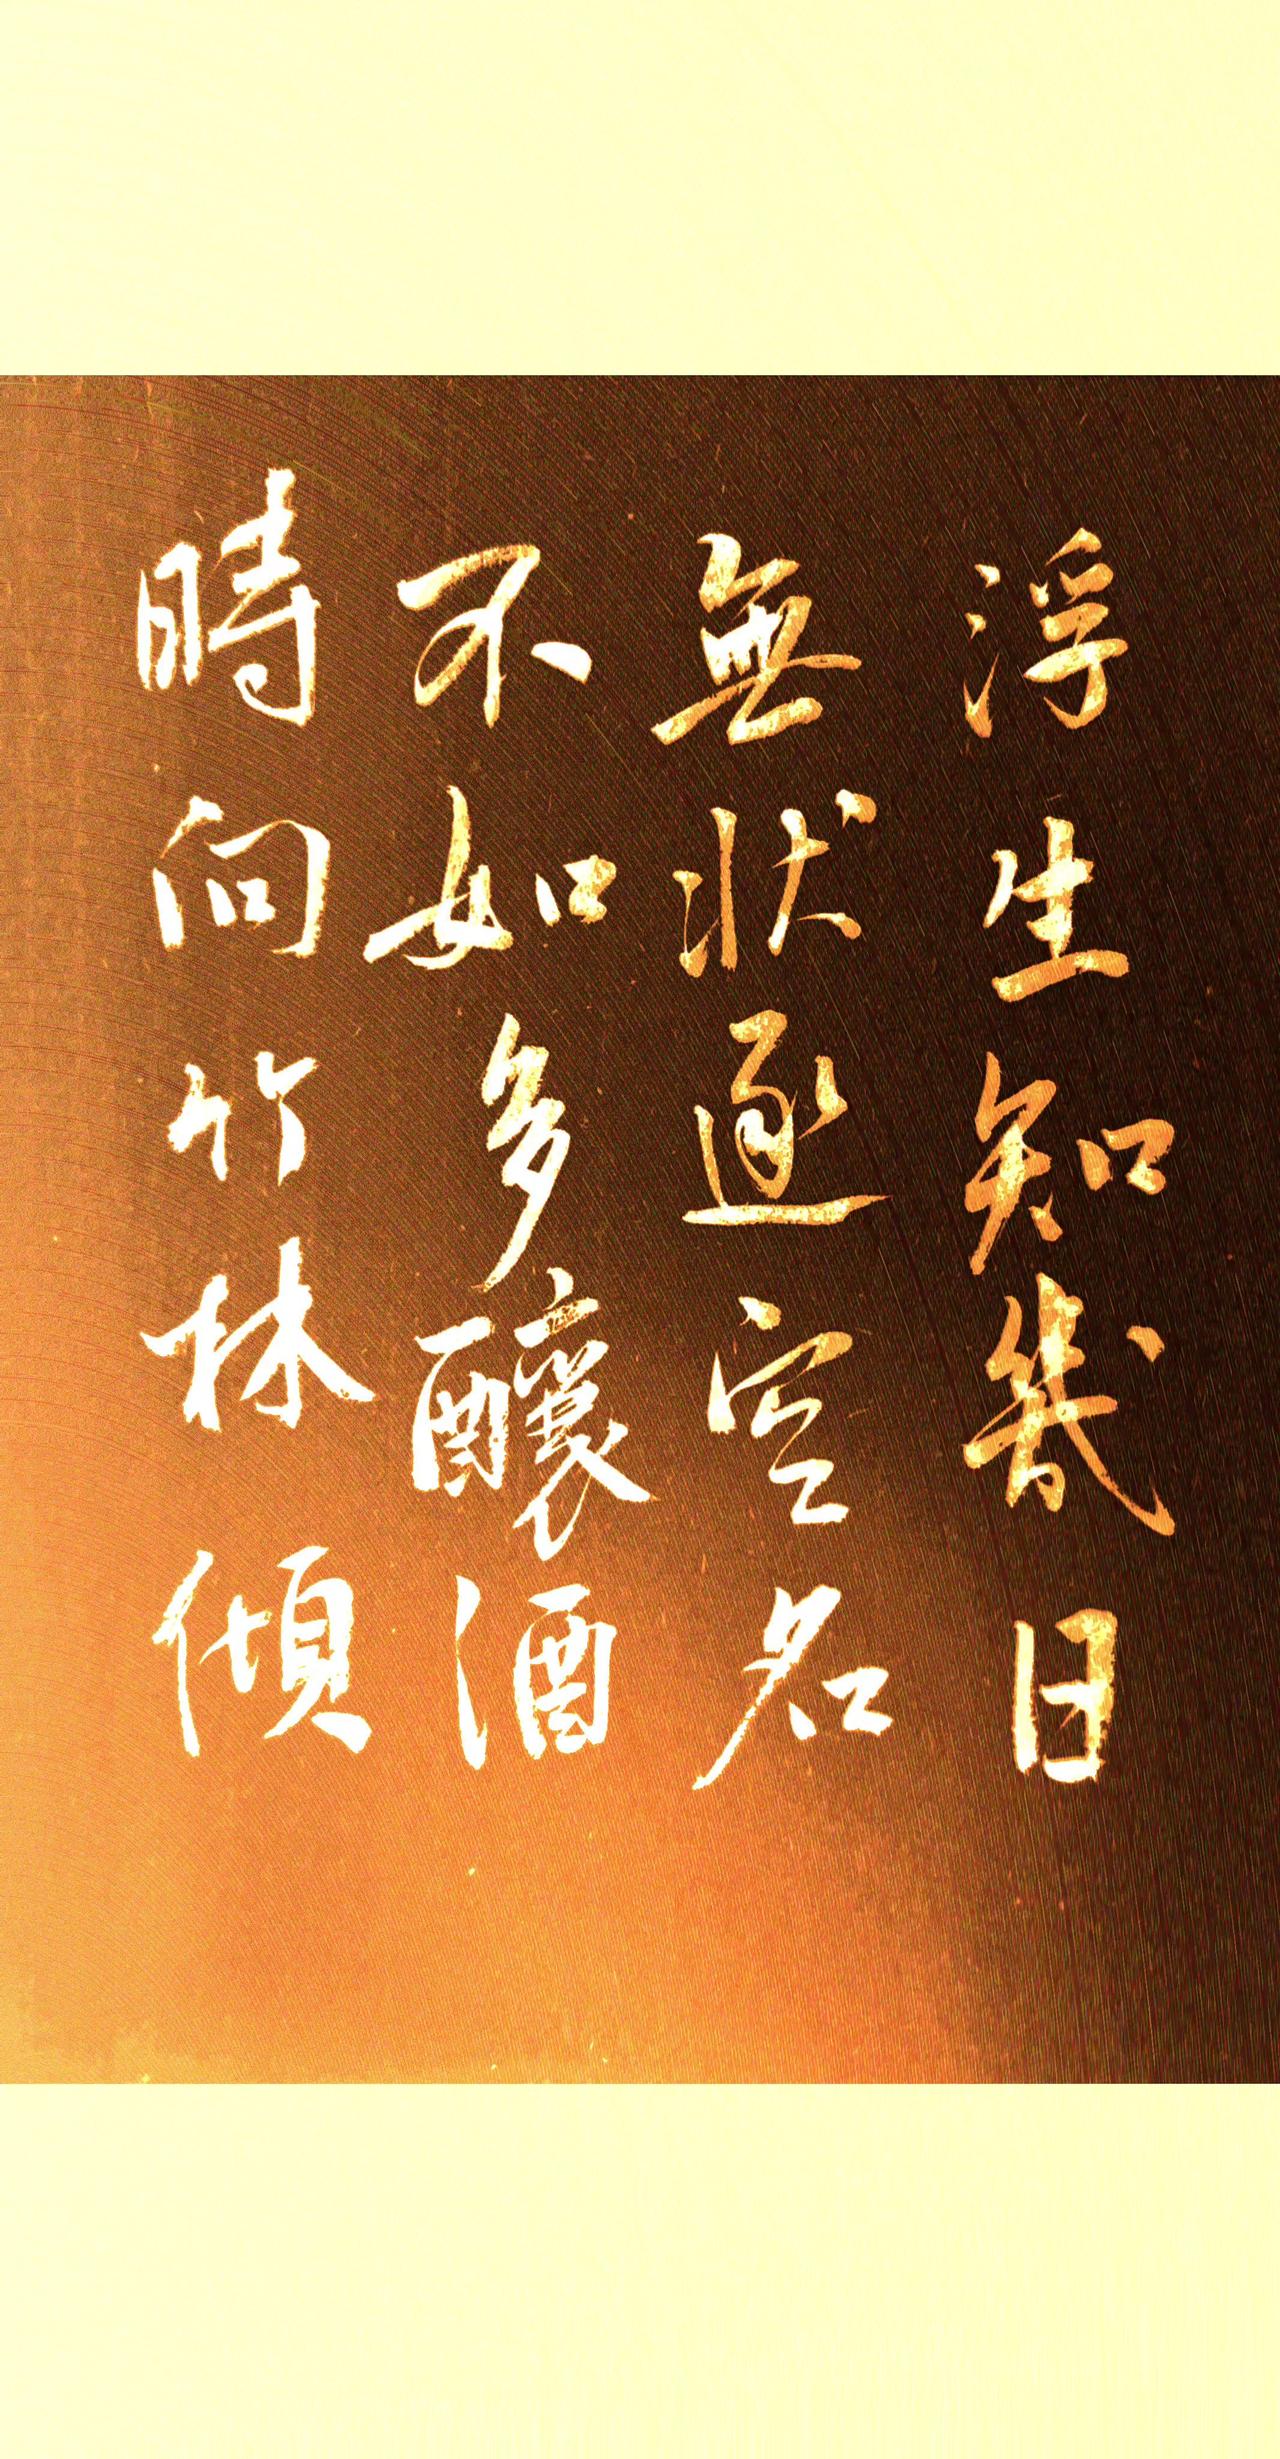 浮生知幾日
無狀逐空名
不如多釀酒
時向竹林傾